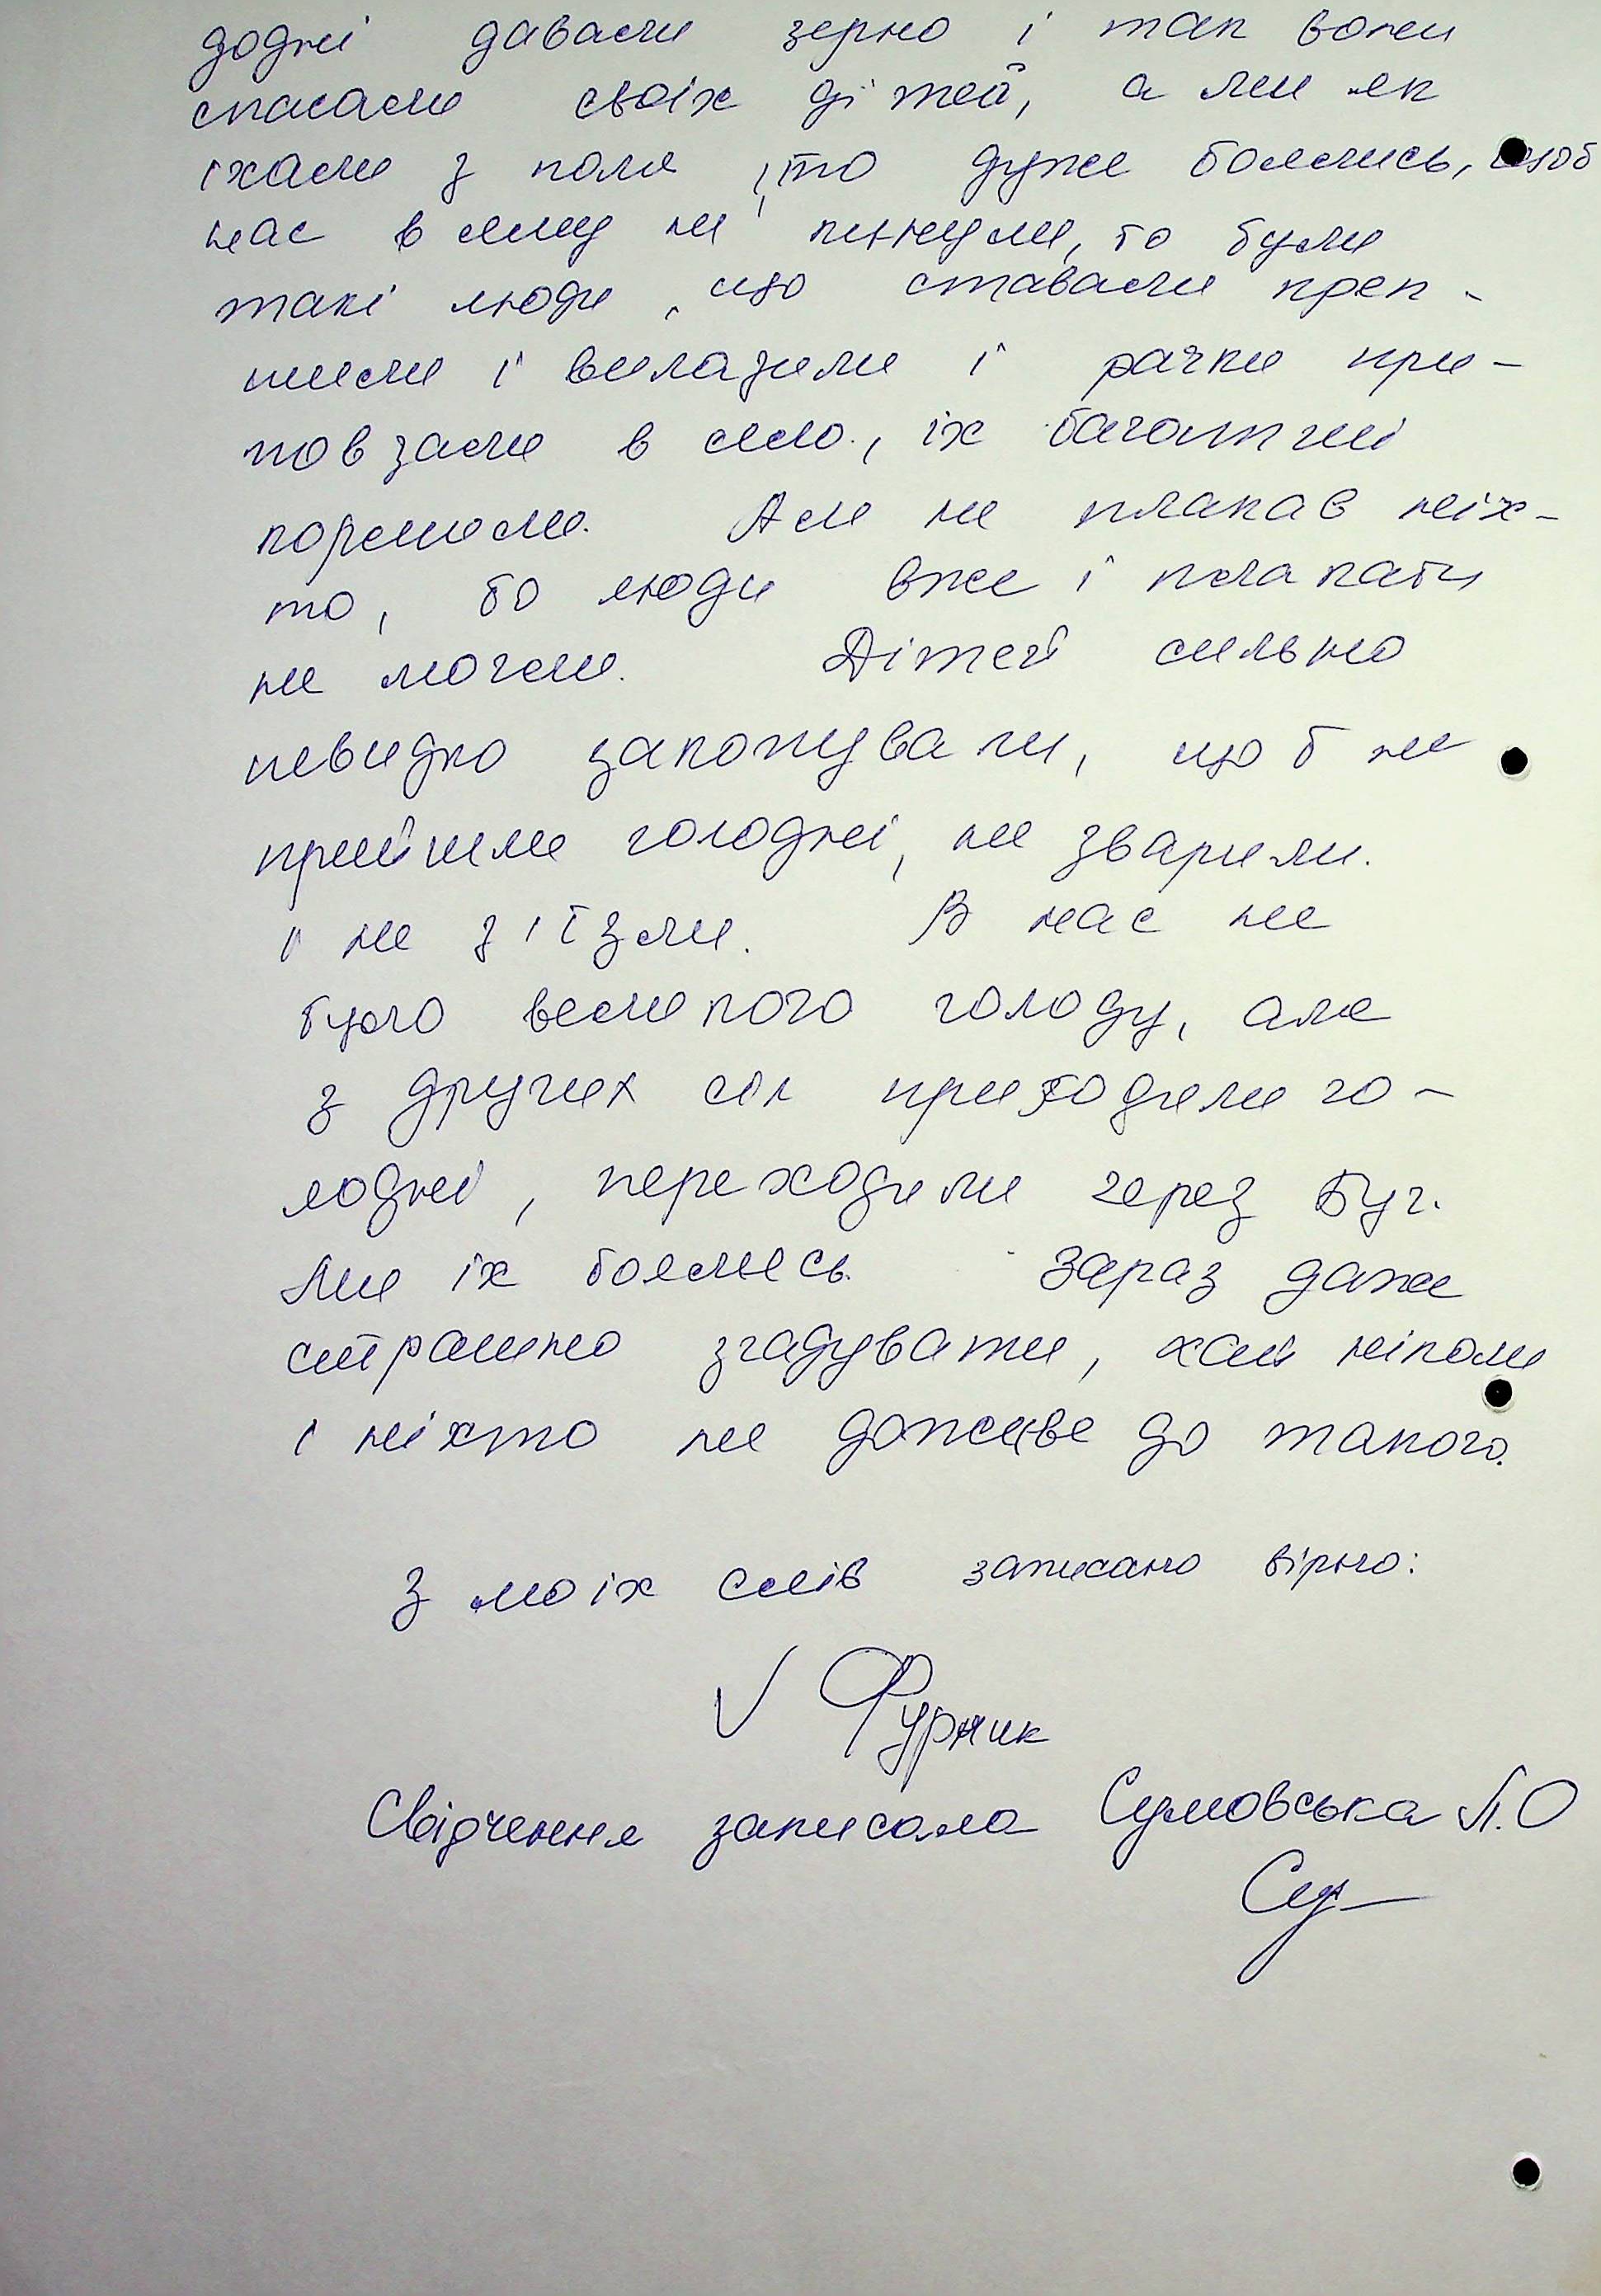 додні давали зерно і так вони
спасали своїх дітей, а ми як
їхали з поля, то дуже боялись, щоб
нас в яму не кинули, бо були
такі люди, що ставали креп-
шими і вилазили і рачки при-
повзали в село, їх багатші
кормили. Але не плакав ніх-
то, бо люди вже і плакати
не могли. Дітей сильно
швидко закопували, щоб не
прийшли голодні, не зварили
і не з'їли. В нас не
було великого голоду, але
з других сіл приходили го-
лодні, переходили через Буг.
Ми їх боялись. Зараз даже
страшно згадувати, хай ніколи
і ніхто не доживе до такого.
З моїх слів записано вірно:
Фурник
Свідчення записала Сумовська Л.О